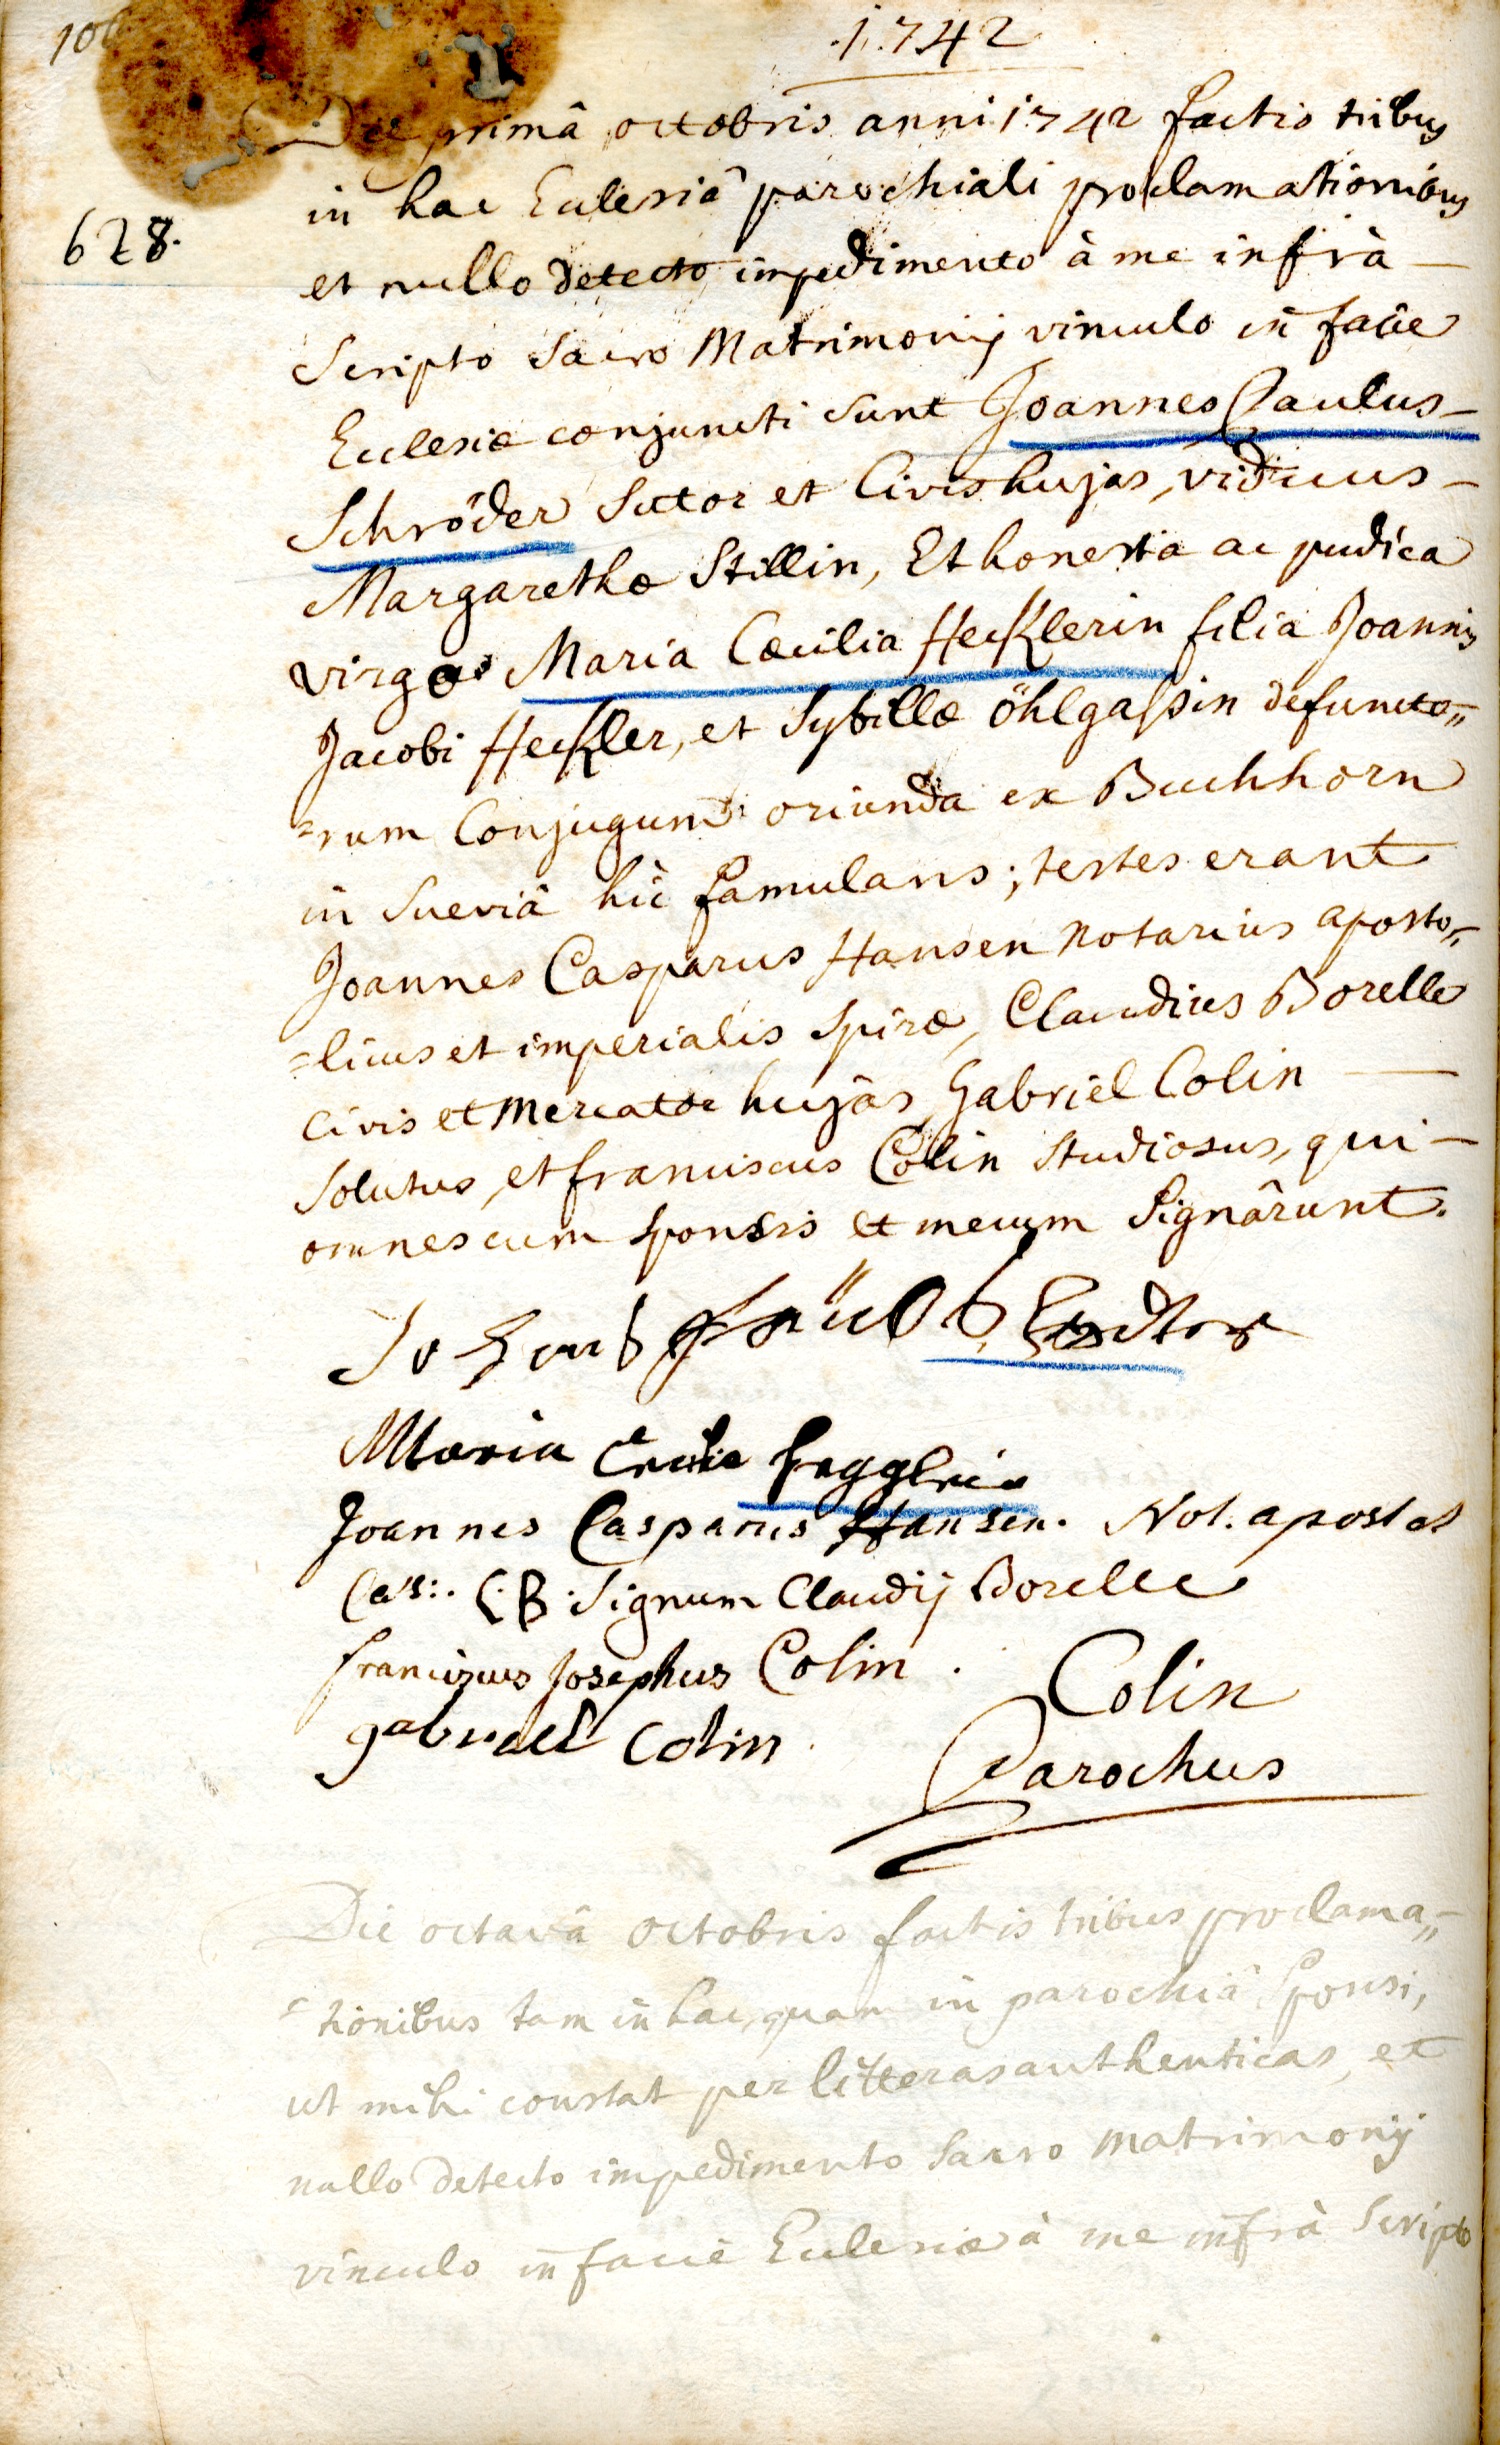 106
.1.742
Die primâ octobris anni 1742 factis tribus
in hac Ecclesiâ parochiali proclamationibus
628.
et nullo detecto impedimento à me infrà
Scripto Sacro Matrimonij vinculo in facie
Ecclesiæ conjuncti sunt Joannes Paulus
Schröder Sutor et Civis hujas, viduus
Margarethæ Stillin, Et honesta ac pudica
virgo Maria Cæcilia Hecklerin filia Joannis
Jacobi Heckler, et Sybillæ öhlgaßin defuncto„
=rum Conjugum oriunda ex Buchhorn
in Sueviâ hîc famulans; testes erant
Joannes Casparus Hansen Notarius aposto„
=licus et imperialis Spiræ, Claudius Borelle
Civis et Mercator hujas, Gabriel Colin
Solutus, et franciscus Colin Studiosus, qui
omnes cum sponsis et mecum Signârunt.
Maria Cecilia Hegglerin
Joannes Casparus Hansen. Not. apost et
Cæs:. C.B. Signum Claudij Borelle
franciscus Josephus Colin.
Colin
gabriell Colin.
Parochus
Die octavâ octobris factis tribus proclama„
=tionibus tam in hac, quam in parochiâ Sponsi,
ut mihi constat per litteras authenticas, et
nullo detecto impedimento Sacro Matrimonij
vinculo in facie Ecclesiæ à me infrà Scripto